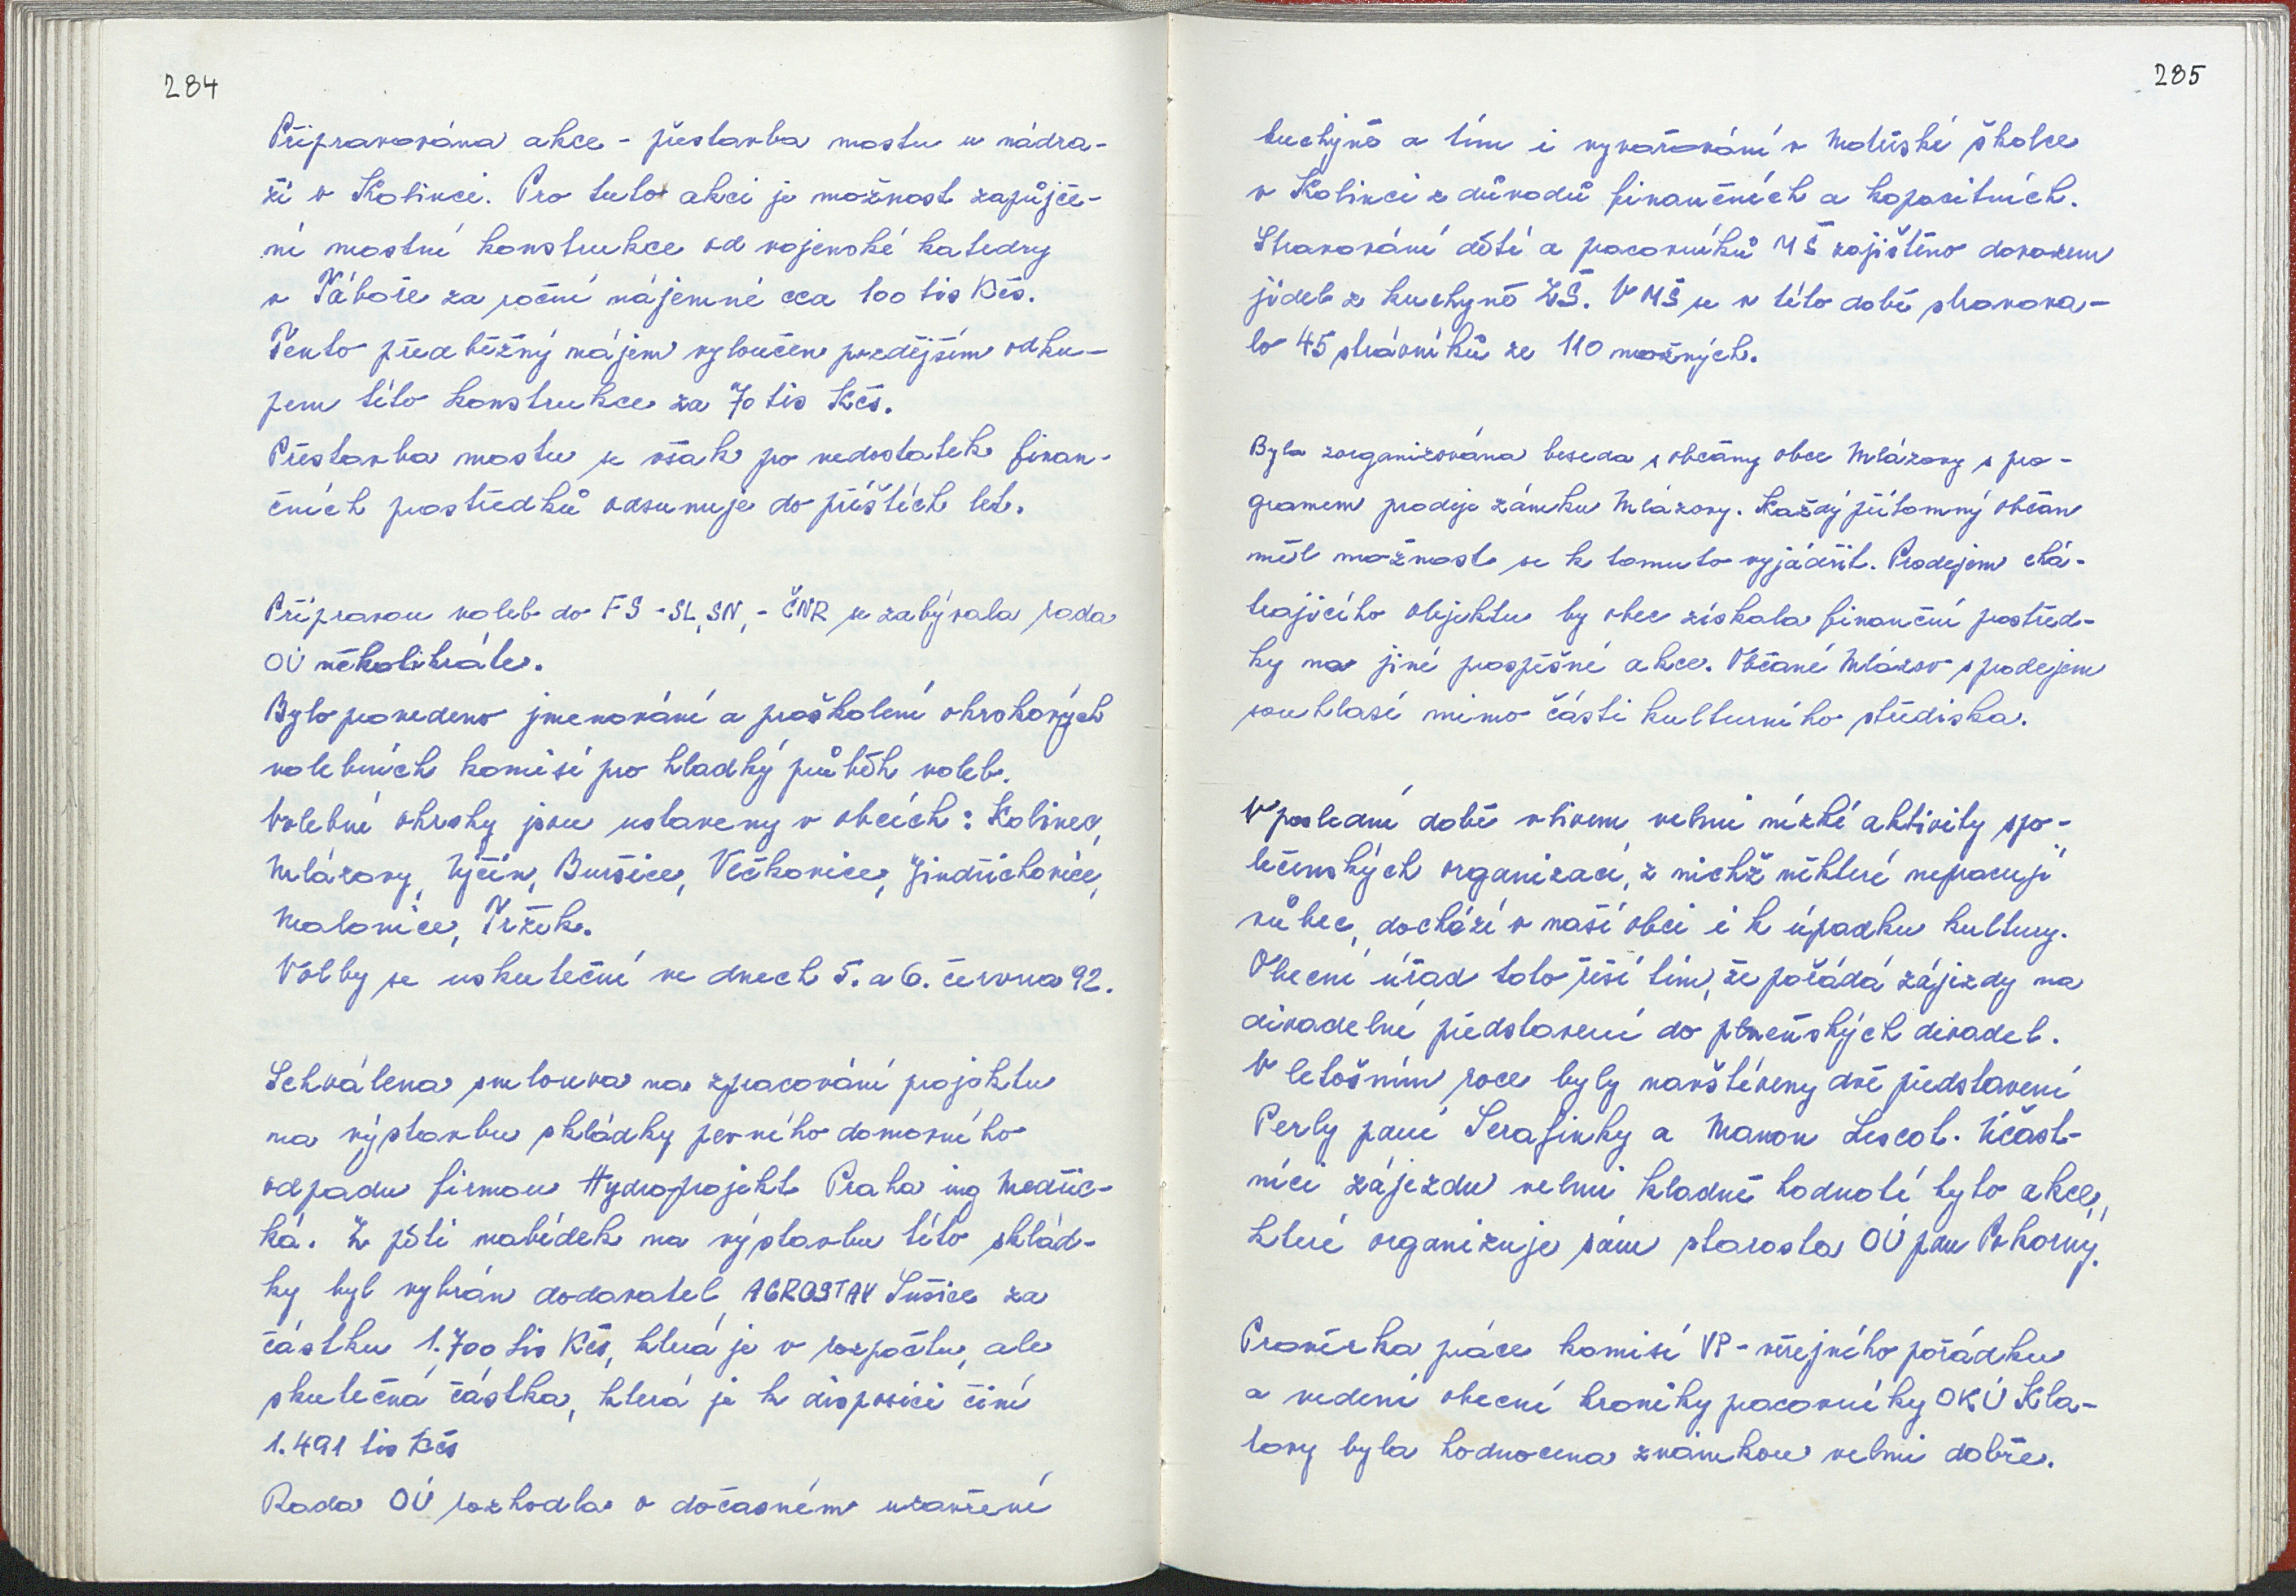 284
Připravována akce - přestavba mostu u nádra-
ží v Kolinci. Pro tuto akci je možnost zapůjče-
ní mostní konstrukce od vojenské katedry
v Táboře za roční nájemné cca 100 tis Kčs.
Tento předběžný nájem vyloučen pozdějším odku-
pem této konstrukce za 70 tis Kčs.
Přestavba mostu se však pro nedostatek finan-
čních prostředků odsunuje do příštích let.
Přípravou voleb do FS - SL, SN, - ČNR se zabývala rada
OÚ několikráte.
Bylo provedeno jmenování a proškolení okrskových
volebních komisí pro hladký průběh voleb.
Volební okrsky jsou ustaveny v obcích: Kolinec,
Mlázovy, Ujčín, Buršice, Vlčkovice, Jindřichovice,
Malonice, Tržek.
Volby se uskuteční ve dnech 5. a 6. června 92.
Schválena smlouva na zpracování projektu
na výstavbu skládky pevného domovního
odpadu firmou Hydroprojekt Praha ing Medřic-
ká. Z pěti nabídek na výstavbu této sklád-
ky byl vybrán dodavatel AGROSTAV Sušice za
částku 1.700 tis Kčs, která je v rozpočtu, ale
skutečná částka, která je k disposici činí
1.491 tis Kčs
Rada OÚ rozhodla o dočasném uzavření
285
kuchyně a tím i vyvařování v Mateřské školce
v Kolinci z důvodů finančních a kapacitních.
Stravování dětí a pracovníků MŠ zajištěno dovozem
jídel z kuchyně ZŠ. V MŠ se v této době stravova-
lo 45 strávníků ze 110 možných.
Byla zorganizována beseda s občany obce Mlázovy s pro-
gramem prodeje zámku Mlázovy. Každý přítomný občan
měl možnost se k tomuto vyjádřit. Prodejem chá-
trajícího objektu by obec získala finanční prostřed-
ky na jiné prospěšné akce. Občané Mlázov s prodejem
souhlasí mimo části kulturního střediska.
V poslední době vlivem velmi nízké aktivity spo-
lečenských organizací, z nichž některé nepracují
vůbec, dochází v naší obci i k úpadku kultury.
Obecní úřad toto řeší tím, že pořádá zájezdy na
divadelní představení do plzeňských divadel.
V letošním roce byly navštíveny dvě představení
Perly paní Serafinky a Manon Lescot. Účast-
níci zájezdu velmi kladně hodnotí tyto akce,
které organizuje sám starosta OÚ pan Pokorný.
Prověrka práce komisí VP - veřejného pořádku
a vedení obecní kroniky pracovníky OKÚ Kla-
tovy byla hodnocena známkou velmi dobře.